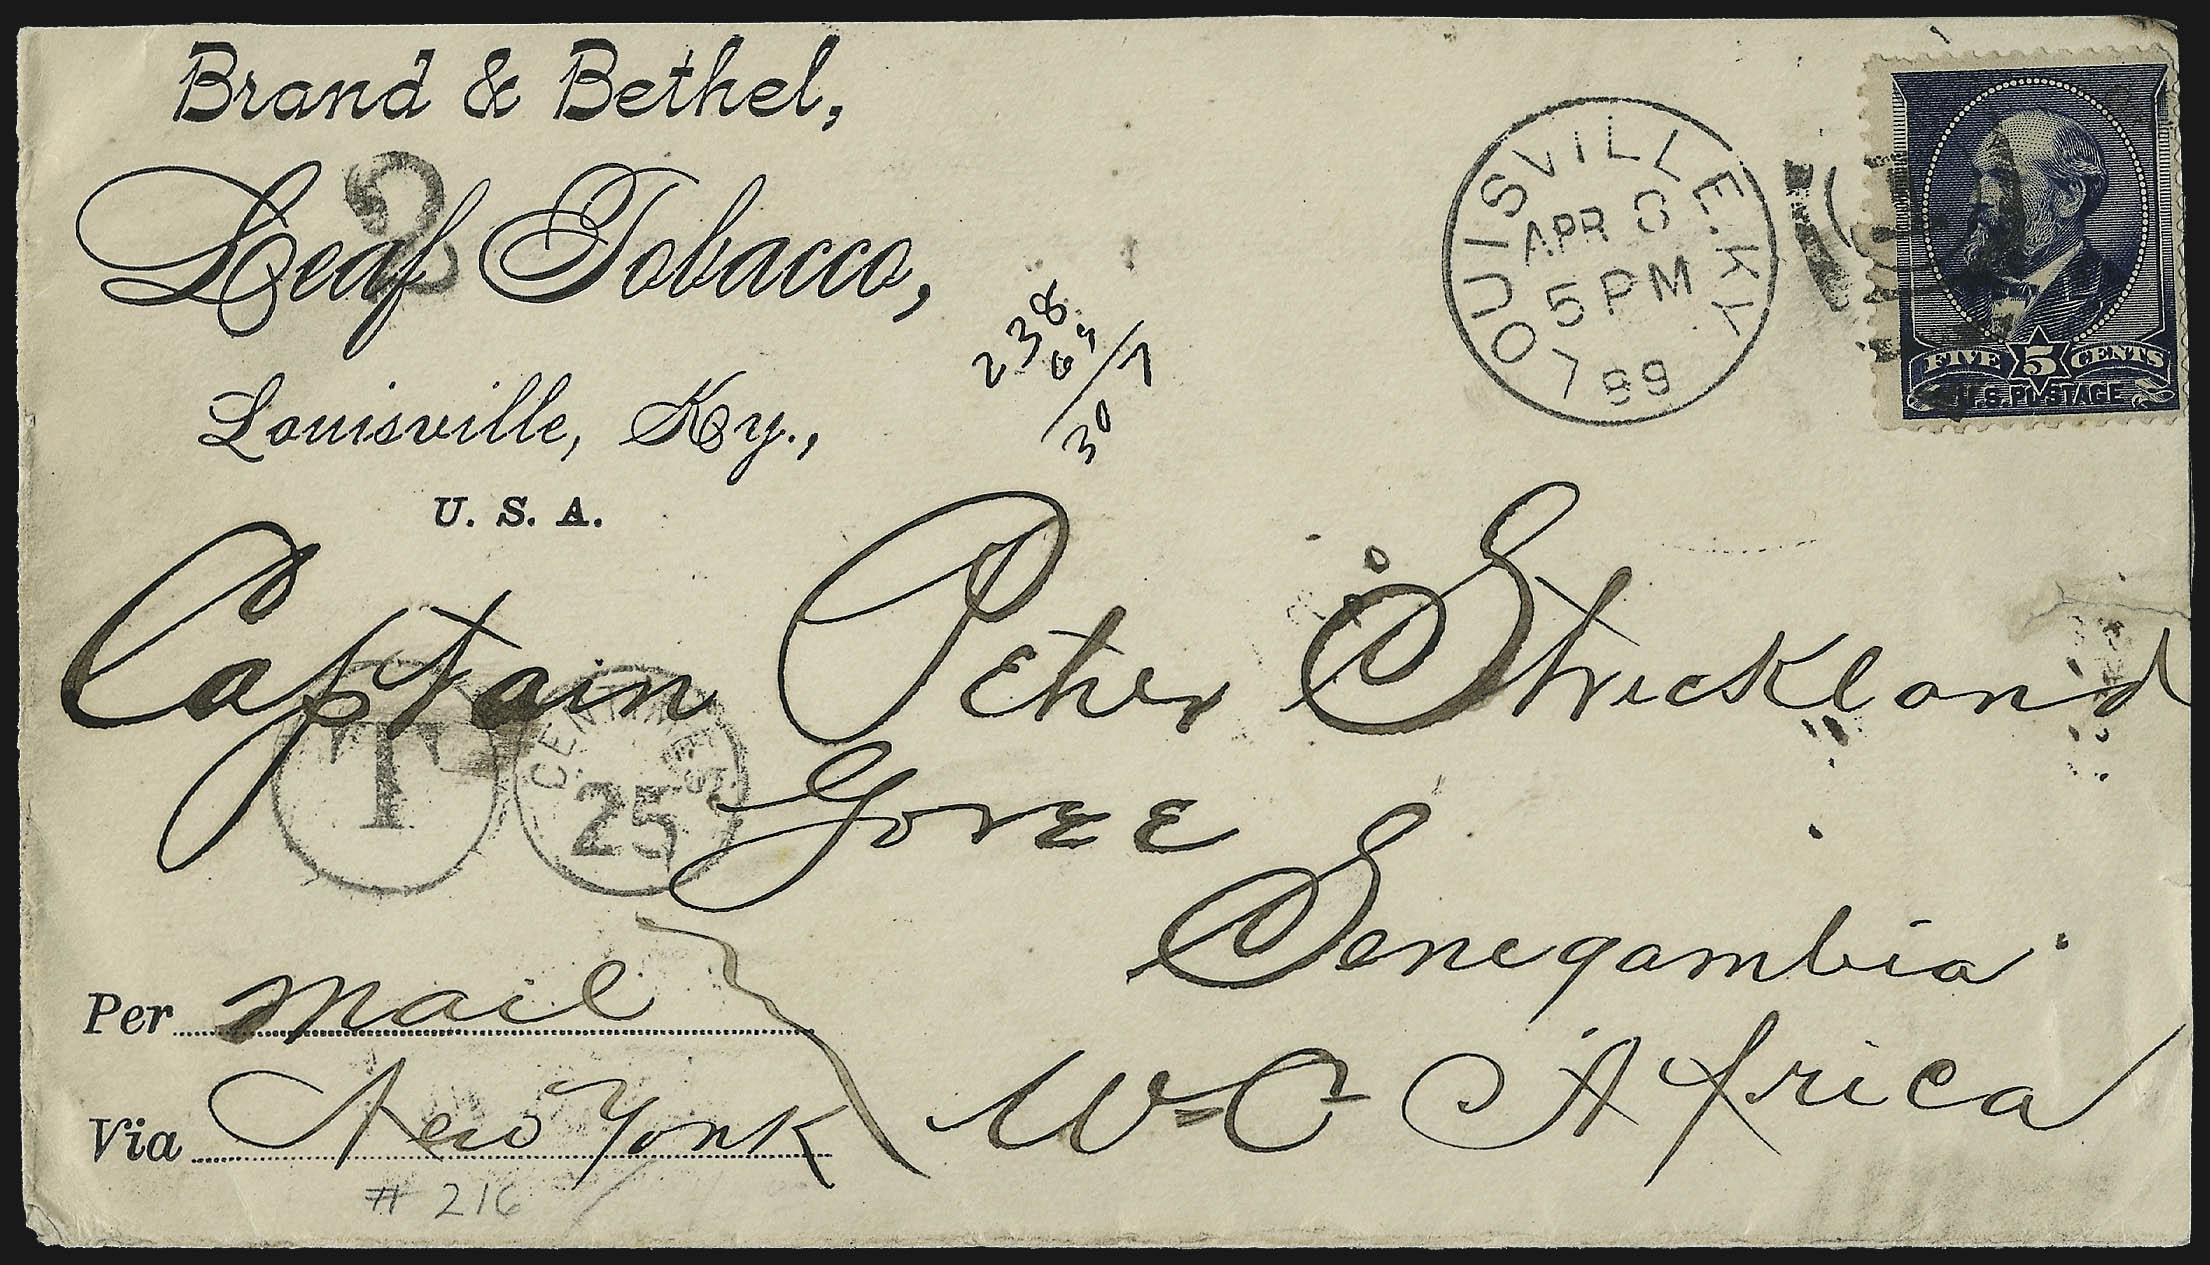 Brand & Bethel,
Leaf Tobacco,
Louisville, Ky.,
U. S. A.
2
238
30/7
LOUISVILLE. KY.
APR 8
5 PM
89
FIVE 5 CENTS
U.S. POSTAGE
Captain Peter Strickland
Goree
Senegambia
W. C Africa
T
CENTIMES
25
Per Mail
Via New York
# 216